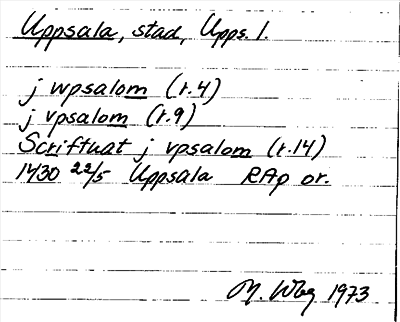 Uppsala, stad, Upps. l.
j wpsalom (r.4)
j vpsalom (r.9)
Scriffuat j vpsalom (r.14)
1430 22/5 Uppsala RAp or.
M. Wbg 1973